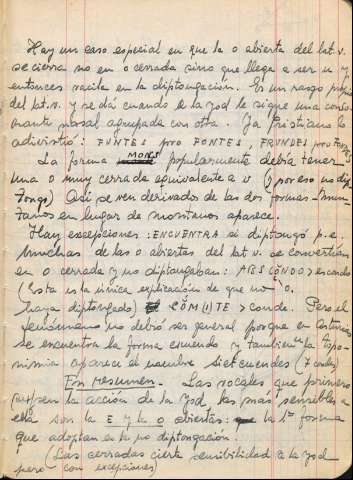 Hay un caso especial en que la o abierta del lat. v.
se cierra no en o cerrada sino que llega a ser u y
entonces vacila en la diptongación. Es un rasgo propio
del lat. v. y se dá cuando le la yod le sigue una conso
nante nasal agrupada con otra. Ya Pristiano lo
advirtió: FUNTES pro FONTES, FRUNDES pro
La forma MONS popularmente debía tener
una o muy cerrada equivalente a u (y por eso no dip
tonga) Así se ven derivados de las dos formas
tanos en lugar de montanos aparece.
Hay excepciones: ENCUENTRA si diptongó p. e.
Muchas de las o abiertas del lat v. se convertían
en o cerrada y no diptongaban: ABSCONDO > escondo
(Esta es la única explicación de que no
haya diptongado) COM(I)TE > conde. Pero el
fenómeno no debió ser general porque en
se encuentra la forma cuendo y tambien en la topo-
nimia aparece el nombre Sietcuendes (7 condes)
En resumen.- Las vocales que primero
sufren la acción de la yod las más sensibles a
ella son la E y la O abiertas: la 1ª forma
que adoptan es la no diptongación.
(Las cerradas cierta sensibilidad a la yod
pero con excepciones)